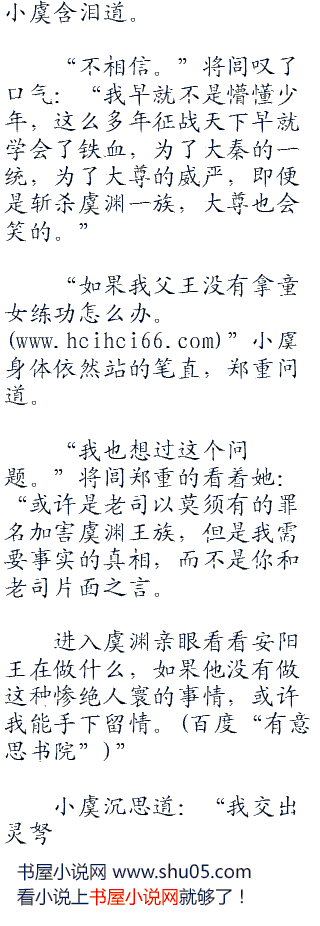 小虞含泪道。
“不相信。”将闾叹了
口气：“我早就不是懵懂少
年，这么多年征战天下早就
学会了铁血，为了大秦的一
统，为了大尊的威严，即便
是斩杀虞渊一族，大尊也会
笑的。”
“如果我父王没有拿童
女练功怎么办。
(www.hcihci66.com)”小虞
身体依然站的笔直，郑重问
道。
“我也想过这个问
题。”将闾郑重的看着她：
“或许是老司以莫须有的罪
名加害虞渊王族，但是我需
要事实的真相，而不是你和
老司片面之言。
进入虞渊亲眼看看安阳
王在做什么，如果他没有做
这种惨绝人寰的事情，或许
我能手下留情。(百度“有意
思书院”)”
小虞沉思道：“我交出
灵弩
书屋小说网 www.shu05.com
看小说上书屋小说网就够了！